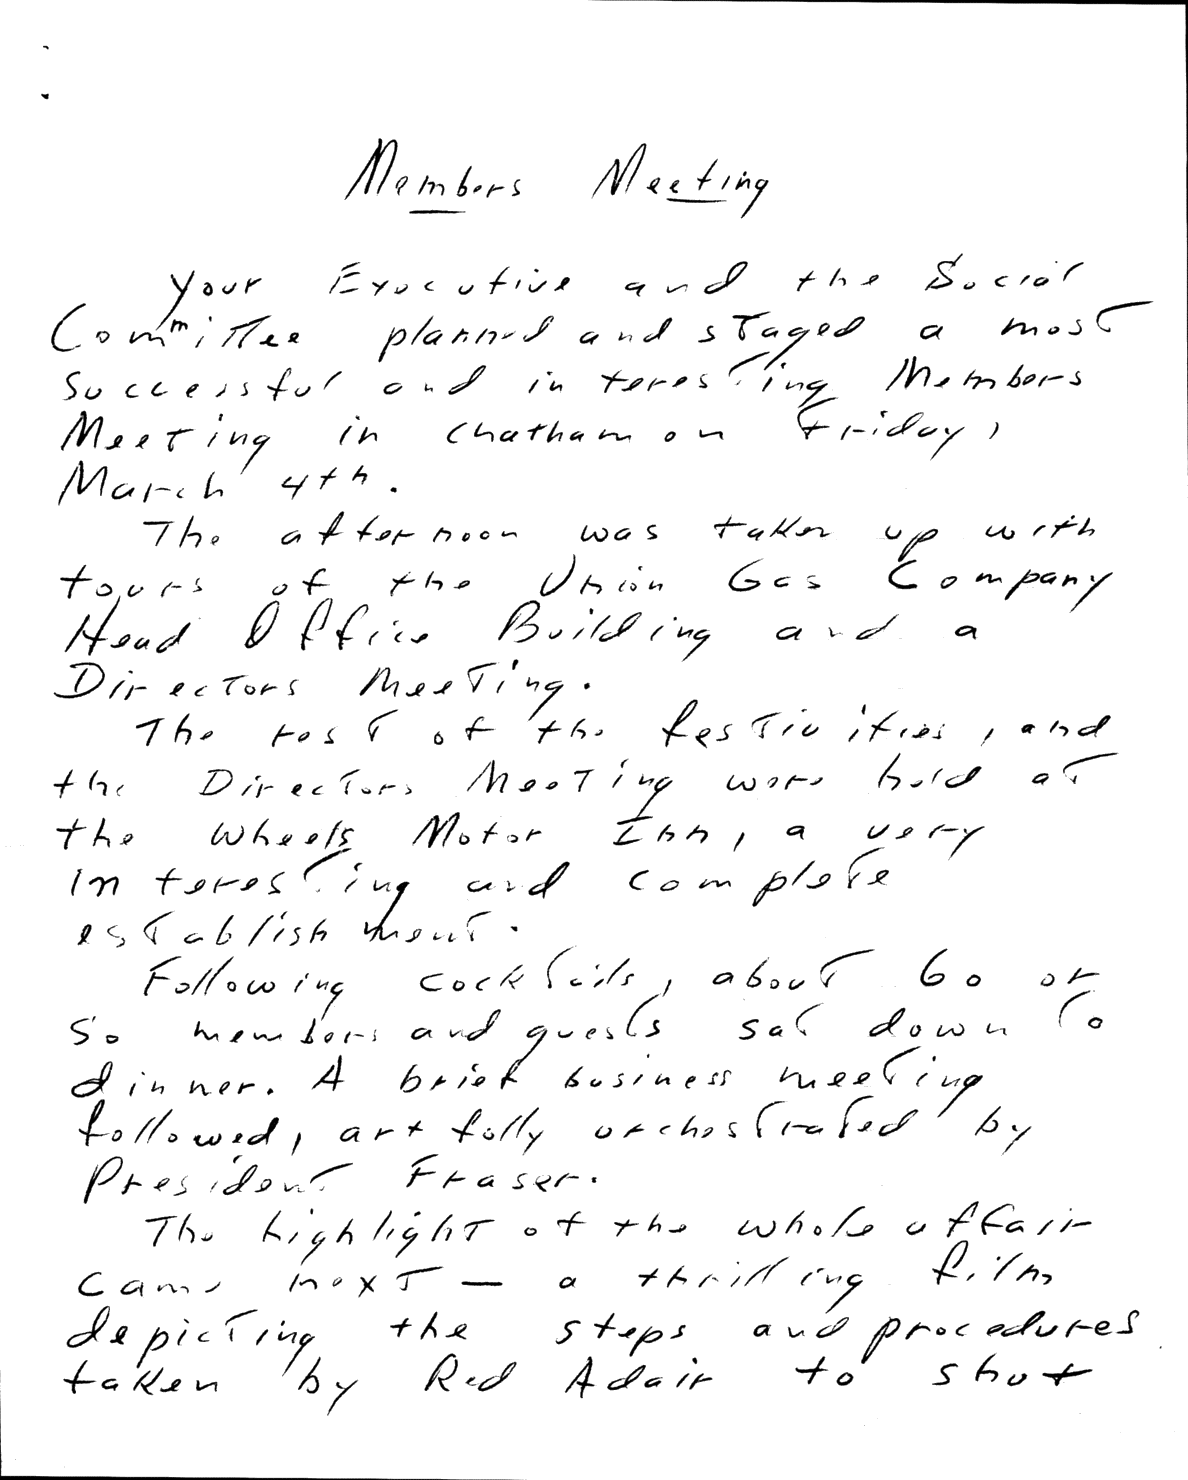 Members Meeting
Your Executive and the Social
Committee planned and staged a most
successful and interesting Members
Meeting in Chatham on Friday,
March 4th.
The afternoon was taken up with
tours of the Union Gas Company
Head Office Building and a
Directors Meeting.
The rest of the festivities, and
the Directors Meeting were held at
the Wheels Motor Inn, a very
interesting and complete
establishment.
Following cocktails, about 60 or
so members and guests sat down to
dinner. A brief business meeting
followed, artfully orchestrated by
President Fraser.
The highlight of the whole affair
came next — a thrilling film
depicting the steps and procedures
taken by Red Adair to shut